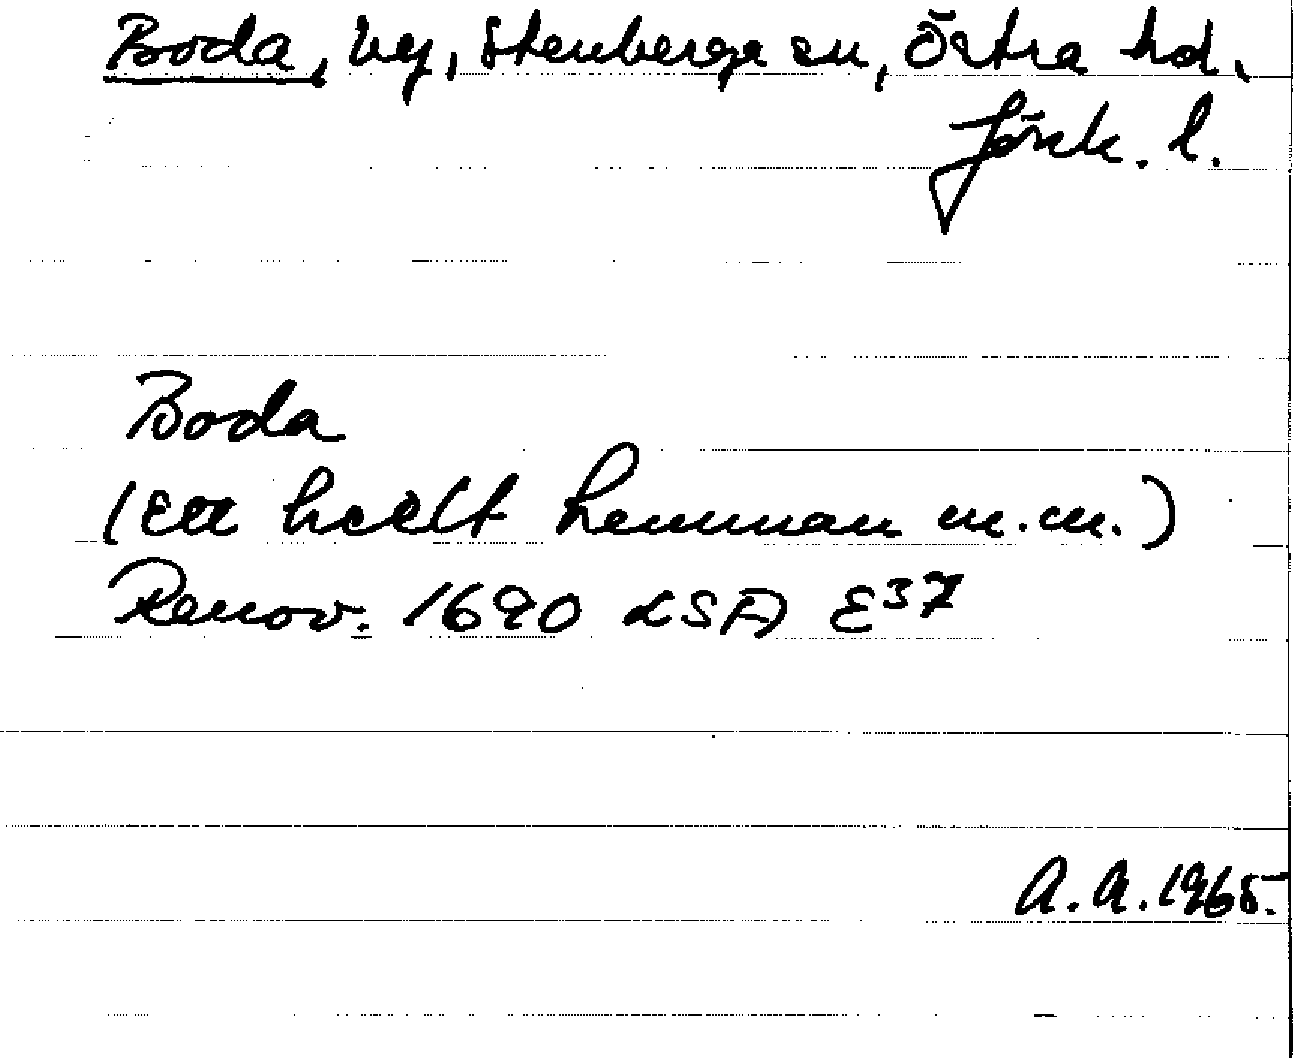 Boda, by, Stenberga sn, Östra hd,
Jönk. l.
Boda
(Ett heelt hemman m.m.)
Renov. 1690 LSA E³7
A.A. 1965.